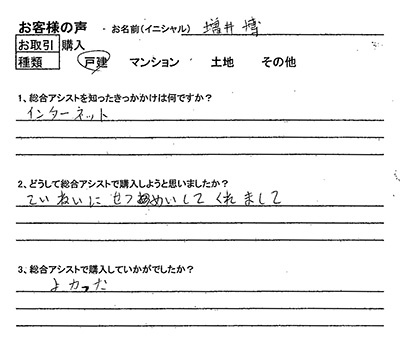 お客様の声 ・お名前(イニシャル) 増井 博
お取引 購入
種類 戸建 マンション 土地 その他
1、総合アシストを知ったきっかかけは何ですか?
インターネット
2、どうして総合アシストで購入しようと思いましたか?
ていねいに せつあめいして くれまして
3、総合アシストで購入していかがでしたか?
よかった